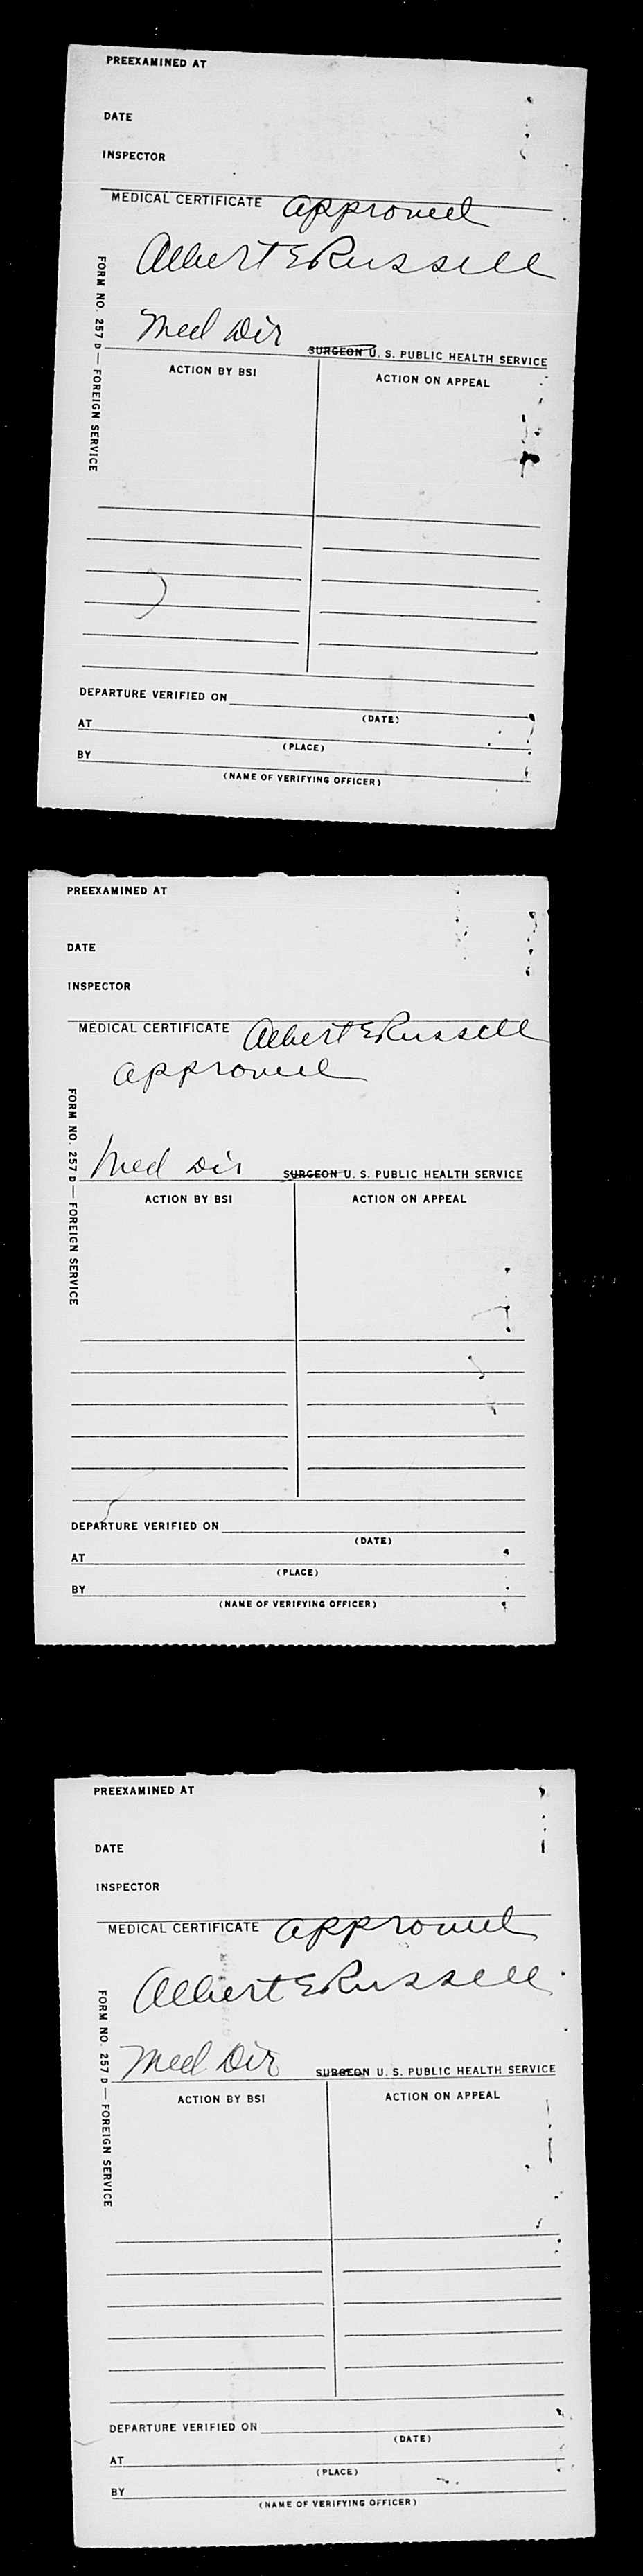 PREEXAMINED AT
DATE
INSPECTOR
MEDICAL CERTIFICATE approved
Albert E Russell
Med Dir SURGEON U. S. PUBLIC HEALTH SERVICE
FORM NO. 257 D — FOREIGN SERVICE
ACTION BY BSI ACTION ON APPEAL
DEPARTURE VERIFIED ON
(DATE)
AT
(PLACE)
BY
(NAME OF VERIFYING OFFICER)
PREEXAMINED AT
DATE
INSPECTOR
MEDICAL CERTIFICATE Albert E Russell
approved
Med Dir SURGEON U. S. PUBLIC HEALTH SERVICE
FORM NO. 257 D — FOREIGN SERVICE
ACTION BY BSI ACTION ON APPEAL
DEPARTURE VERIFIED ON
(DATE)
AT
(PLACE)
BY
(NAME OF VERIFYING OFFICER)
PREEXAMINED AT
DATE
INSPECTOR
MEDICAL CERTIFICATE approved
Albert E Russell
Med Dir SURGEON U. S. PUBLIC HEALTH SERVICE
FORM NO. 257 D — FOREIGN SERVICE
ACTION BY BSI ACTION ON APPEAL
DEPARTURE VERIFIED ON
(DATE)
AT
(PLACE)
BY
(NAME OF VERIFYING OFFICER)